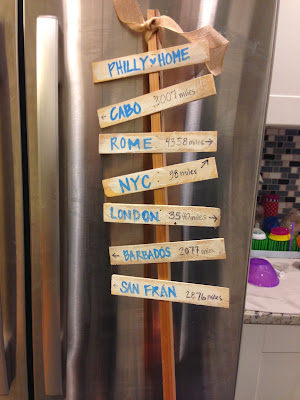 PHILLY♥HOME
← CABO 3007 miles
ROME 4358 miles →
NYC 98 miles ↗
LONDON 3540 miles →
← BARBADOS 2077 miles
← SAN FRAN 2876 miles